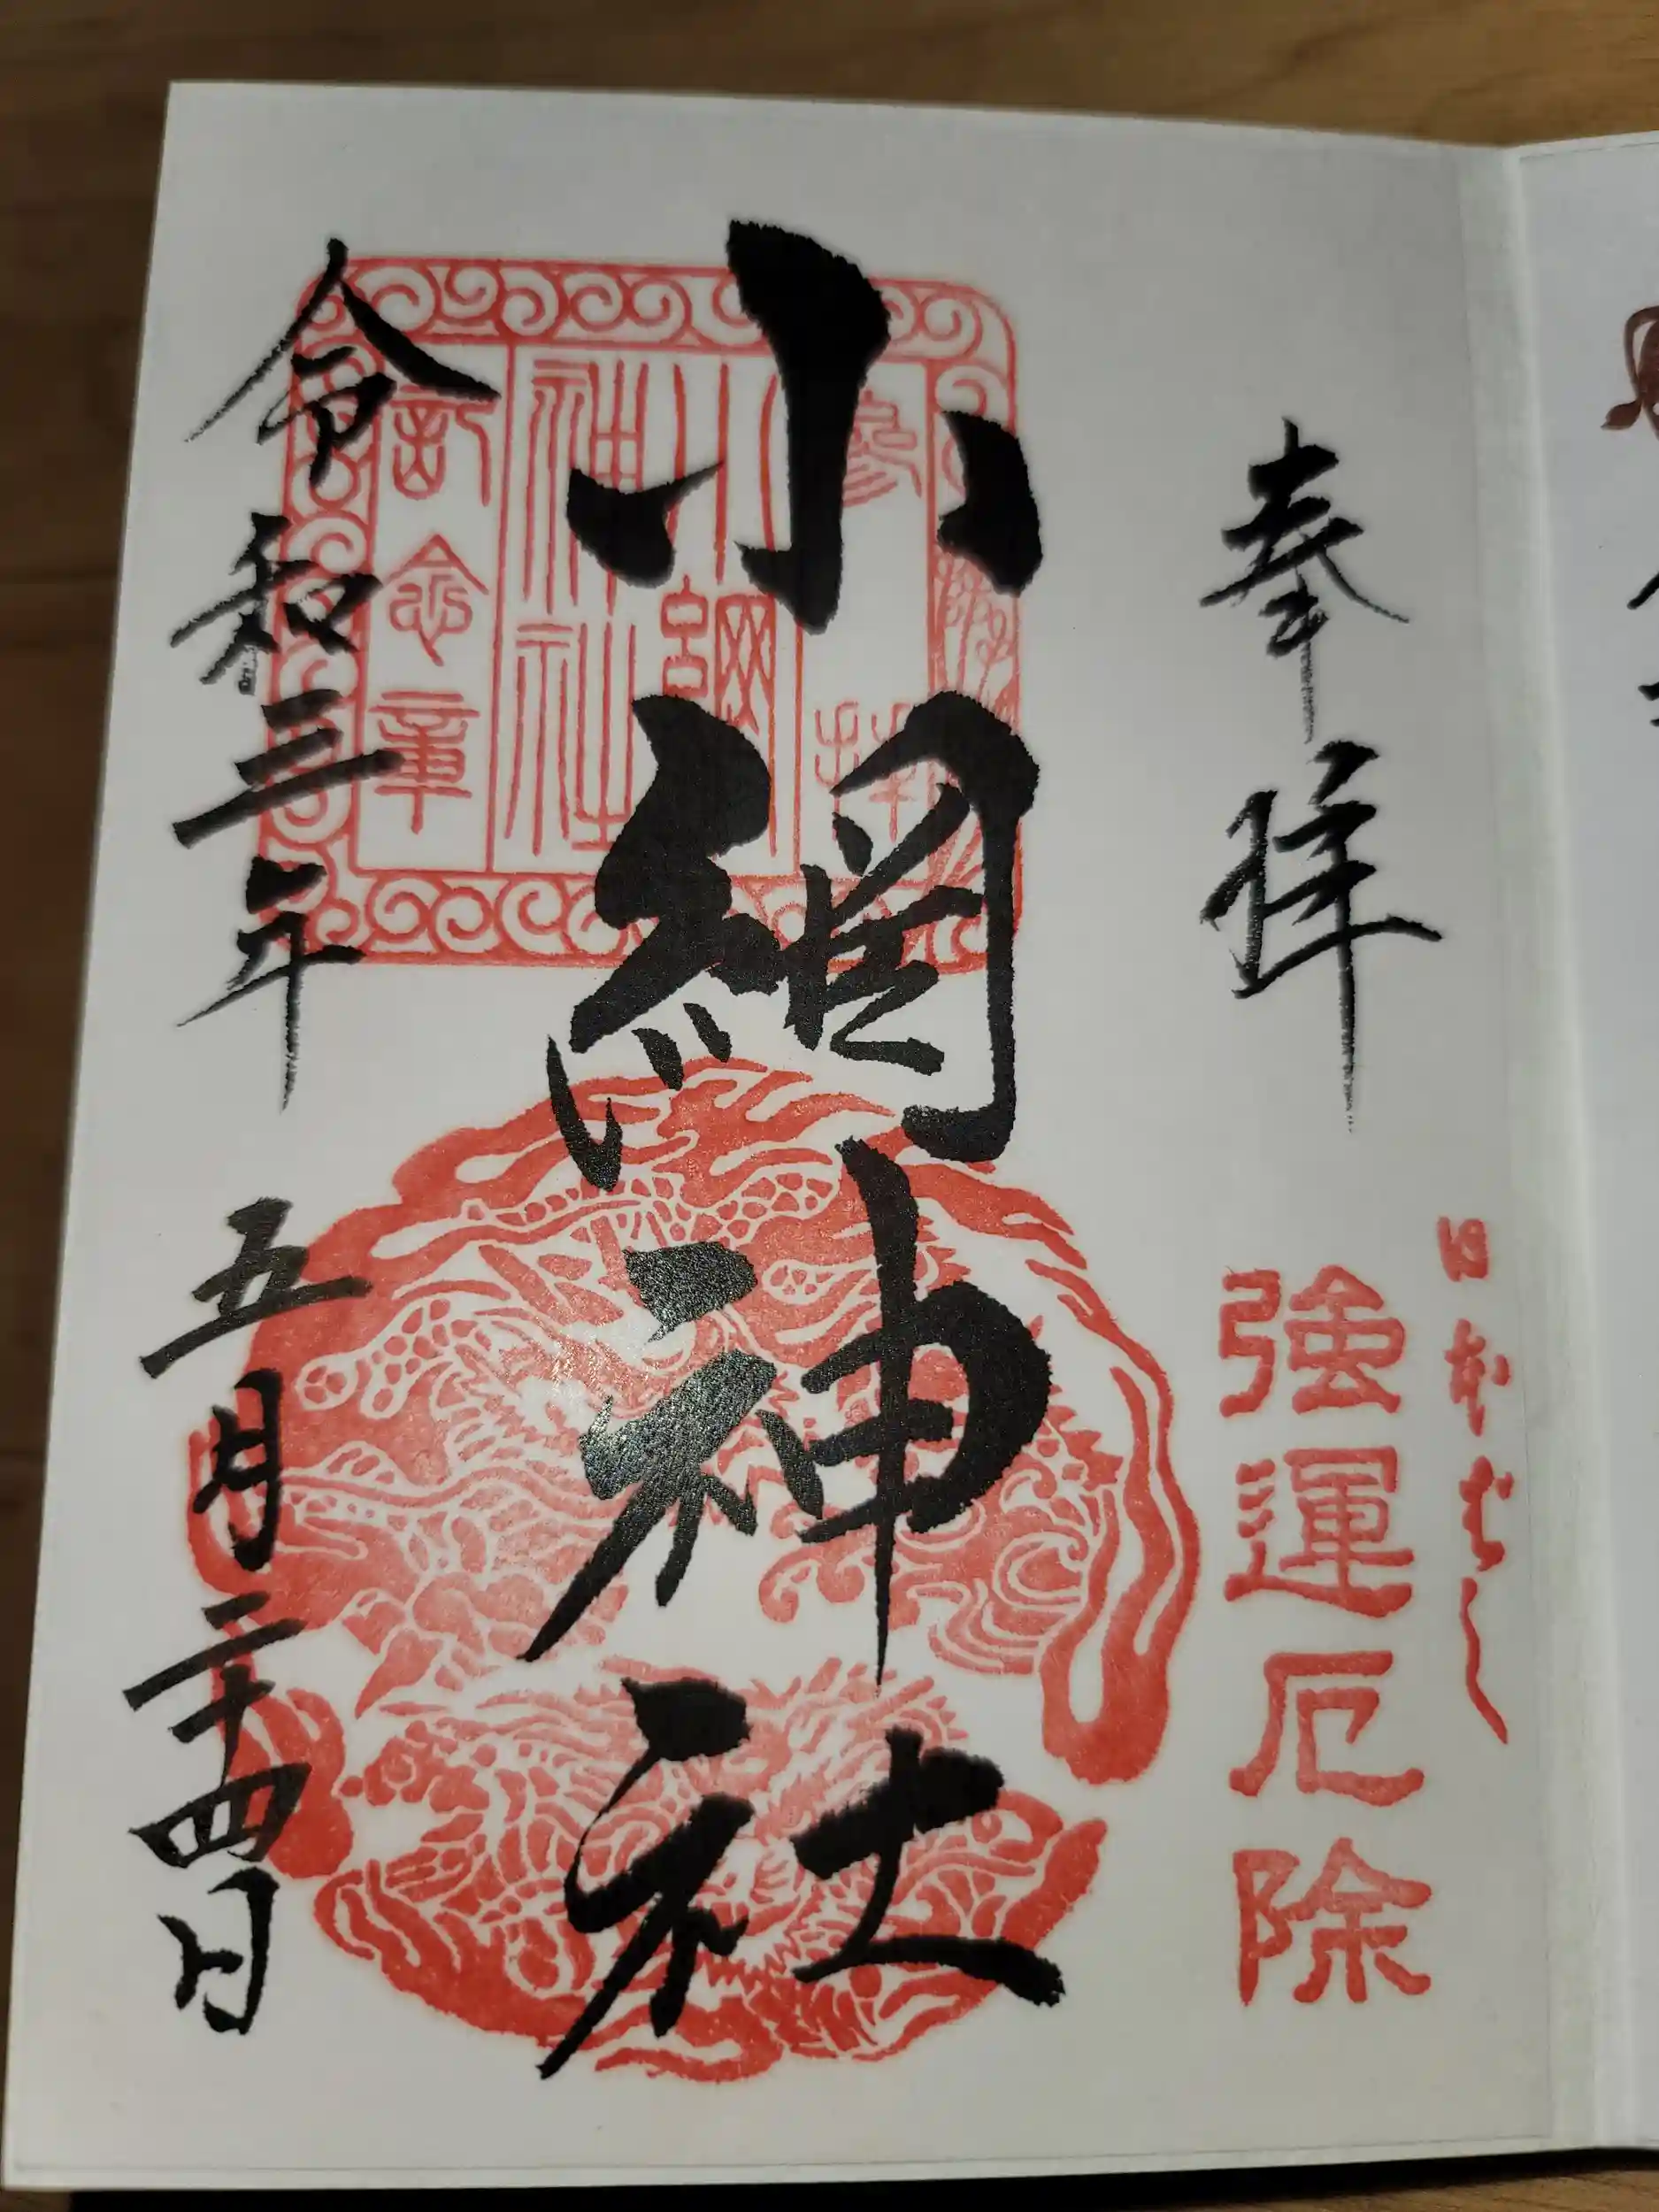 奉拝
日本ばし
強運厄除
小網神社
参拝
小網
神社
記念章
令和三年 五月二十四日